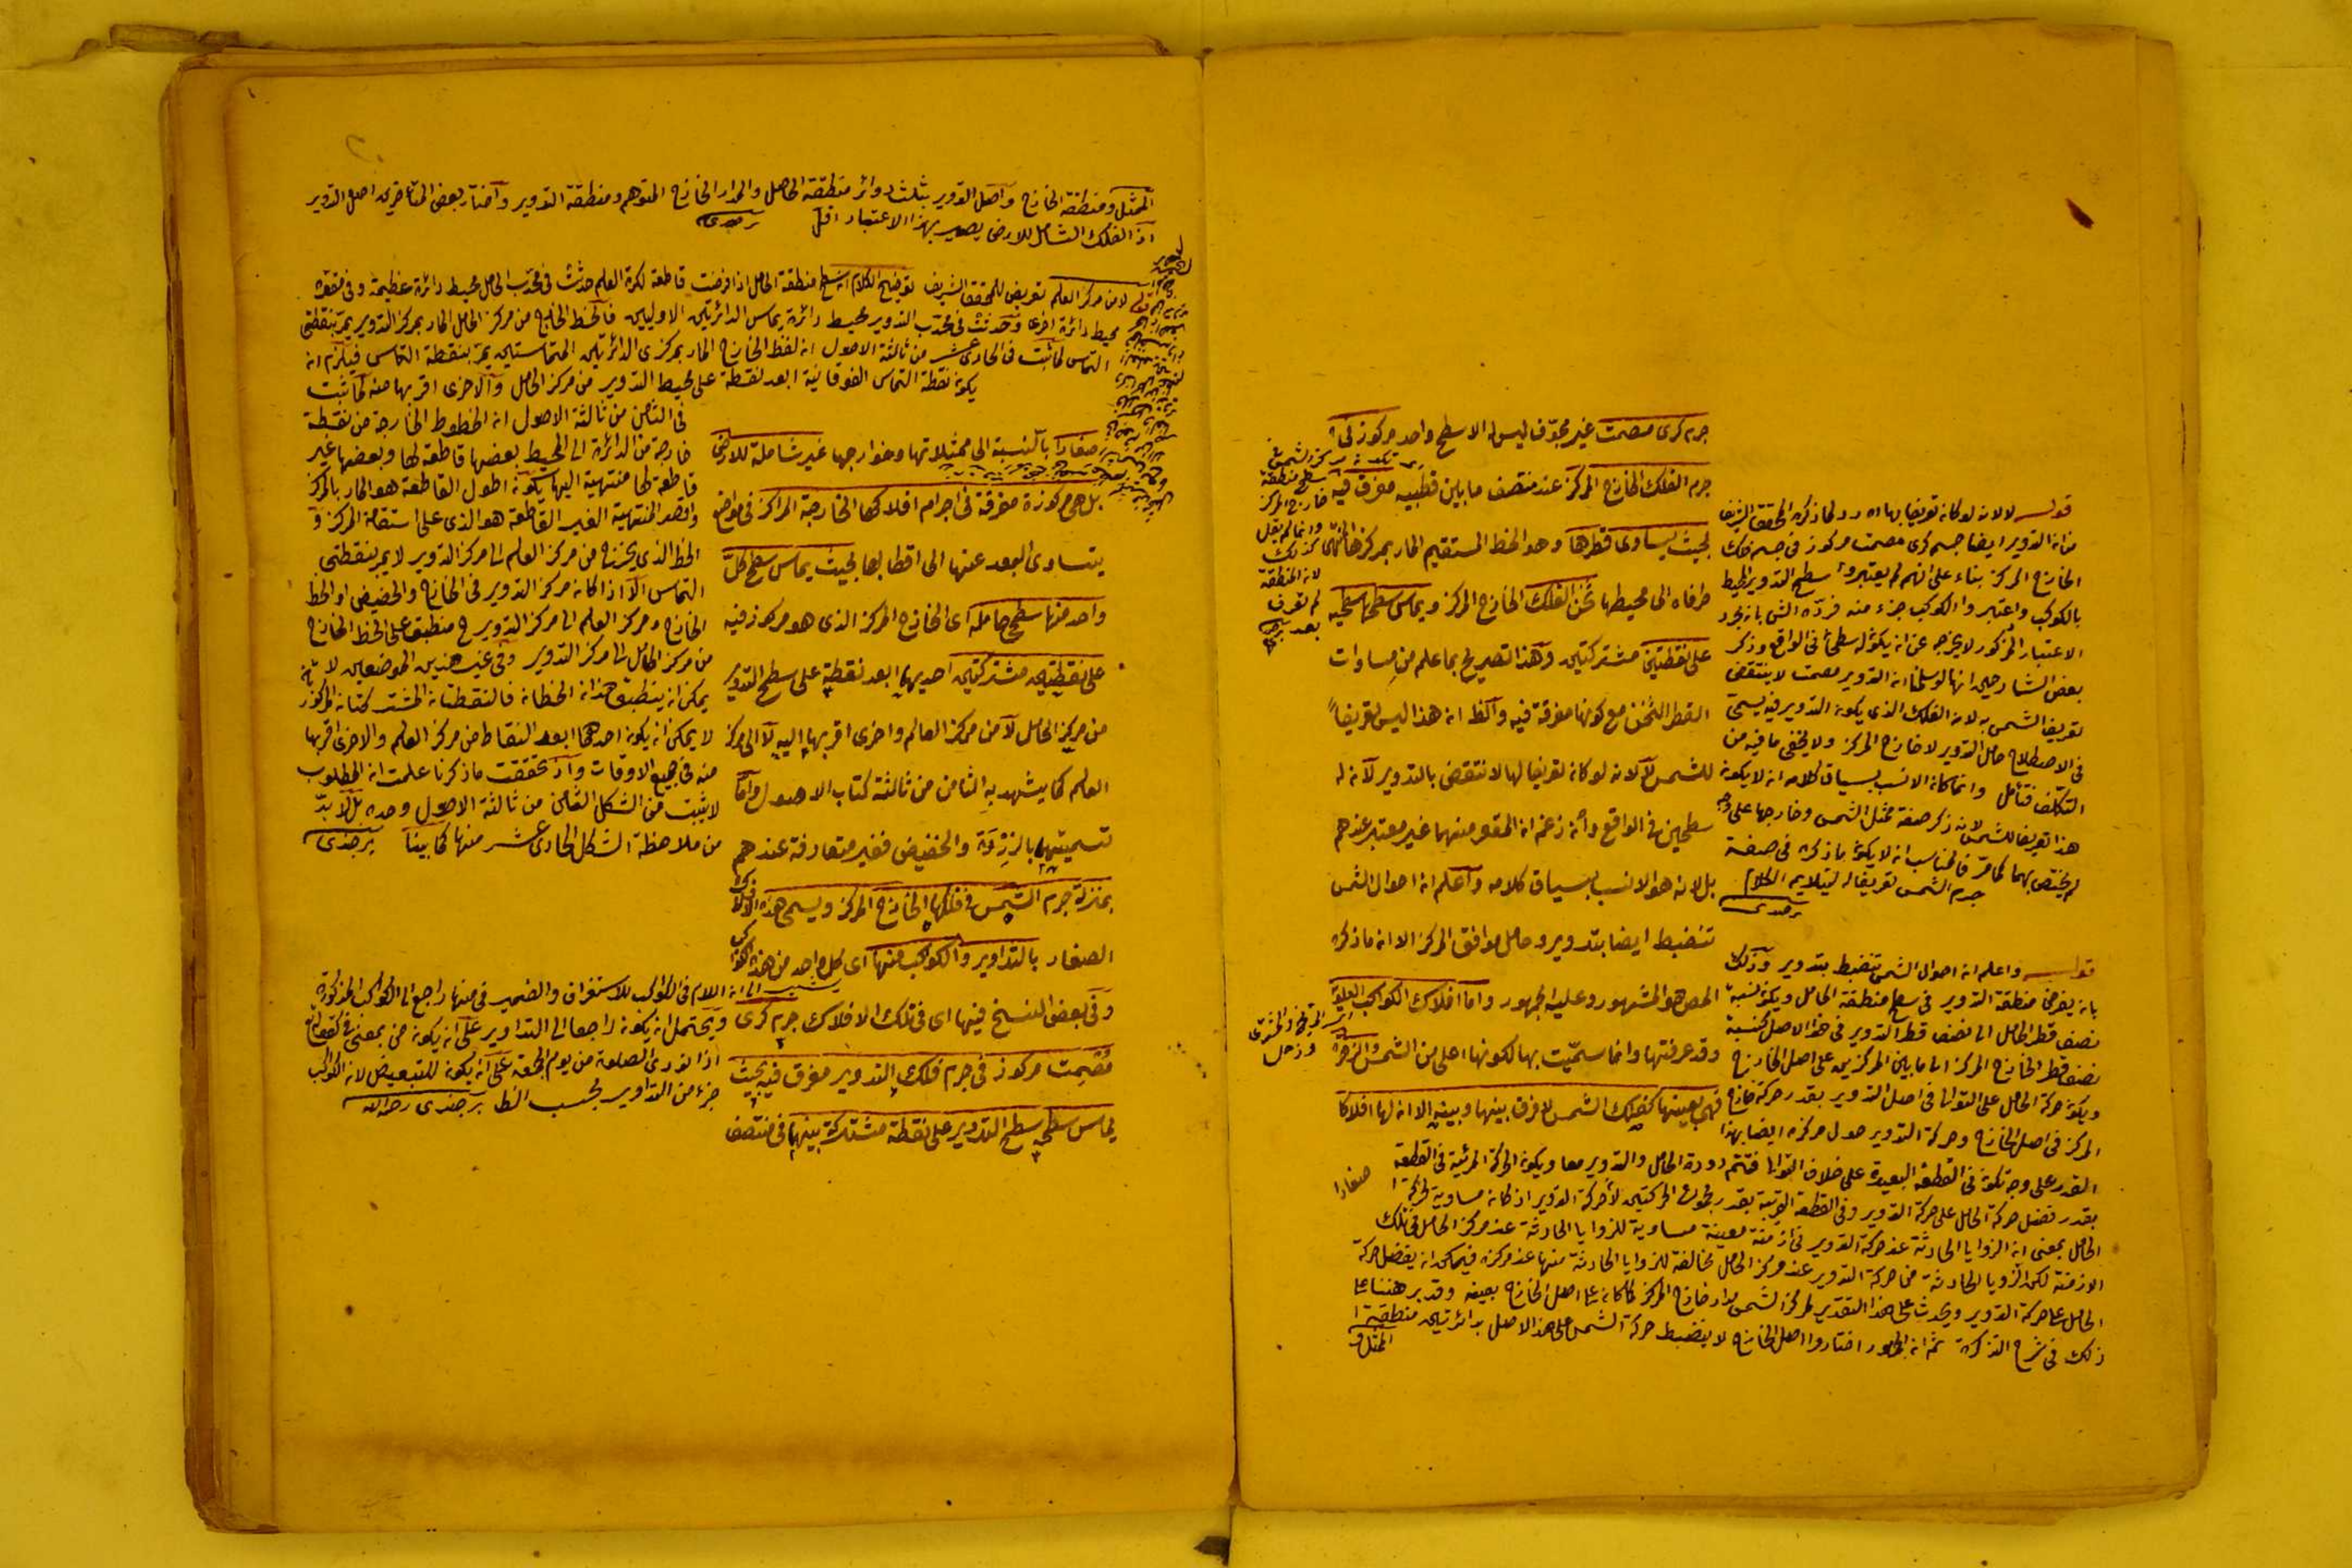 جرم كرى مصمت غير مجوّف ليس له الا سطح واحد مركوز فى
جرم الفلك الخارج المركز عند منتصف ما بين قطبيه مغرق فيه
بحيث يساوى قطرها وهو الخط المستقيم المار بمركزها المنتهى
طرفاه الى محيطها ثخن الفلك الخارج المركز ويماس سطحها سطحيه
على نقطتين مشتركتين وهذا تصريح بما علم من مساوات
القطر الثخن مع كونها مغرقة فيه والظ ان هذا ليس تعريفا
للشمس لا لانه لو كان تعريفا لها لانتقض بالتدوير لانه له
سطحين فى الواقع وانه زعم ان المقعر منهما غير معتبر عندهم
بل لانه هو الانسب بسياق كلامه واعلم ان احوال الشمس
تنضبط ايضا بتدوير وحامل موافق المركز الا ان ما ذكره
المص هو المشهور وعليه الجمهور واما افلاك الكواكب العلوية
وقد عرفتها وانما سمّيت بها لكونها اعلى من الشمس والزهرة
فهى بعينها كفلك الشمس لا فرق بينها وبينه الا ان لها افلاكا
صغارا
سطح منطقة
خارج المركز
وانما لم يقل
كذلك
لان المنطقة
لم تعرف
بعد
المريخ والمشترى
وزحل
قوله لا لانه لو كان تعريفا بها اه رد لما ذكره المحقق الشريف
من ان التدوير ايضا جسم كرى مصمت مركوز فى جسم فلك
الخارج المركز بناء على انهم لم يعتبروا سطح التدوير المحيط
بالكوكب واعتبروا الكوكب جزء منه فردّه الش بان مجرد
الاعتبار المذكور لا يخرجه عن ان يكون له سطحا فى الواقع وذكر
بعض الشارحين انها لو سلمنا ان التدوير مصمت لا ينتقض
تعريف الشمس به لان الفلك الذى يكون التدوير فيه يسمى
فى الاصطلاح حامل التدوير لا خارج المركز ولا يخفى ما فيه من
التكلف فتأمل وانما كان الانسب بسياق كلامه ان لا يكون
هذا تعريفا للشمس لانه ذكر صفة ممثل الشمس وخارجها على وجه
لم يختص بهما كما مرّ فالمناسب ان لا يكون ما ذكره فى صفة
جرم الشمس تعريفا له ليتلايم الكلام
برجندى
قوله واعلم ان احوال الشمس تنضبط بتدوير وذلك
بان يفرض منطقة التدوير فى سطح منطقة الحامل ويكون نسبة
نصف قطر الحامل الى نصف قطر التدوير فى هذا الاصل كنسبة
نصف قطر الخارج المركز الى ما بين المركزين على اصل الخارج
ويكون حركة الحامل على التوالى فى اصل التدوير بقدر حركة خارج
المركز فى اصل الخارج وحركة التدوير حول مركزه ايضا بهذا
القدر على وجه تكون فى القطعة البعيدة على خلاف التوالى فتتم دورة الحامل والتدوير معا ويكون الحركة المرئية فى القطعة
بقدر فضل حركة الحامل على حركة التدوير وفى القطعة القريبة بقدر مجموع الحركتين لا حركة التدوير اذ كان مساوية لحركة
الحامل بمعنى ان الزوايا الحادثة عند حركة التدوير فى ازمنة معينة مساوية للزوايا الحادثة عند مركز الحامل فى تلك
الازمنة لكن الزوايا الحادثة من حركة التدوير عند مركز الحامل مخالفة للزوايا الحادثة منها عند مركزه فيمكن ان يفضل حركة
الحامل على حركة التدوير ويحدث على هذا التقدير لمركز الشمس مدار خارج المركز كما كان على اصل الخارج بعينه وقد برهننا على
ذلك فى شرح التذكرة ثم ان الجمهور اختاروا اصل الخارج لا ينضبط حركة الشمس على هذا الاصل بدائرتين منطقة
الممثل و
الممثل ومنطقة الخارج واصل التدوير بثلث دوائر منطقة الحامل والمدار الخارج المتوهم ومنطقة التدوير واختار بعض المتأخرين اصل التدوير
اذ الفلك الشامل للارض يصير بهذا الاعتبار اقل برجندى
لا من مركز العالم تعريض للمحقق الشريف توضيح الكلام ان سطح منطقة الحامل اذا فرضت قاطعة لكرة العالم حدثت فى محدّب الحامل محيط دائرة عظيمة وفى مقعره
محيط دائرة اخرى وحدثت فى محدّب التدوير محيط دائرة يماس الدائرتين الاوليين فالخط الخارج من مركز الحامل المار بمركز التدوير يمرّ بنقطتى
التماس لما ثبت فى الحادى عشر من ثالثة الاصول ان الخط الخارج المار بمركزى الدائرتين المتماستين يمرّ بنقطة التماس فيلزم ان
يكون نقطة التماس الفوقانية ابعد نقطة على محيط التدوير من مركز الحامل والاخرى اقربها منه لما ثبت
فى الثامن من ثالثة الاصول ان الخطوط الخارجة من نقطة
خارجة من الدائرة الى المحيط بعضها قاطعة لها وبعضها غير
قاطعة لها منتهية اليها يكون اطول القاطعة هو المار بالمركز
واقصر المنتهية الغير القاطعة هو الذى على استقامة المركز و
الخط الذى يخرج من مركز العالم الى مركز التدوير لا يمر بنقطتى
التماس الا اذا كان مركز التدوير فى الخارج والحضيض او الخط
الخارج من مركز العالم الى مركز التدوير ح منطبق على الخط الخارج
من مركز الحامل الى مركز التدوير وفى غير هذين الموضعين لا
يمكن ان ينطبق هذان الخطان فالنقطتان المشتركتان المذكورتان
لا يمكن ان يكون احدهما ابعد النقاط من مركز العالم والاخرى اقربها
منه فى جميع الاوقات واذ تحققت ما ذكرنا علمت ان المطلوب
لا يثبت من الشكل الثامن من ثالثة الاصول وحده بل لا بدّ
من ملاحظة الشكل الحادى عشر منها كما بينا برجندى
صغارا بالنسبة الى ممثلاتها وخوارجها غير شاملة للارض
بل هى مركوزة مغرقة فى اجرام افلاكها الخارجة المراكز فى مواضع
يتساوى البعد عنها الى اقطابها بحيث يماس سطح كلّ
واحد منها سطحى حامله اى الخارج المركز الذى هو مركوز فيه
على نقطتين مشتركتين احديهما ابعد نقطة على سطح التدوير
من مركز الحامل لا من مركز العالم واخرى اقربها اليه لا الى مركز
العالم كما يشهد به الثامن من ثالثة كتاب الاصول واما
تسميتهما بالذروة والحضيض فغير متعارفة عندهم
بمنزلة جرم الشمس فى فلكها الخارج المركز ويسمى هذه الافلاك
الصغار بالتداوير والكواكب منها اى كل واحد من هذه الكواكب
وفى بعض النسخ فيها اى فى تلك الافلاك جرم كرى
مُصمت مركوز فى جرم فلك التدوير مغرق فيه بحيث
يماس سطحه سطح التدوير على نقطة مشتركة بينهما فى منتصف
ان اللام فى الكواكب للاستغراق والضمير فى منها راجع الى الكواكب المذكورة
ويحتمل ان يكون راجعا الى التداوير على ان يكون من بمعنى فى كقوله تع
اذا نودى للصلوة من يوم الجمعة على ان يكون للتبعيض لان الكواكب
جزء من التداوير بحسب الظ برجندى رحمه الله